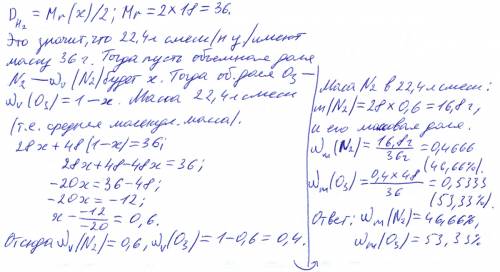 D H₂ = Mr(x)/2; Mr = 2×18 = 36.
Это значит, что 22,4 л смеси /н у/ имеют
массу 36 г. Тогда пусть объемная доля
N₂ — ωᵥ(N₂) будет x. Тогда об. доля O₃ —
ωᵥ(O₃) = 1 – x. Масса 22,4 л смеси
(т.е. средняя молекул. масса).
28x + 48(1 – x) = 36;
28x + 48 – 48x = 36;
–20x = 36 – 48;
–20x = –12;
x – –12/–20 = 0,6.
Отсюда ωᵥ(N₂) = 0,6, ωᵥ(O₃) = 1 – 0,6 = 0,4.
Масса N₂ в 22,4 л смеси:
m(N₂) = 28 × 0,6 = 16,8 г,
и его массовая доля.
ωₘ(N₂) = 16,8г/36г = 0,4666
(46,66%).
ωₘ(O₃) = 0,4 × 48/36 = 0,5333
(53,33%).
Ответ: ωₘ(N₂) = 46,66%,
ωₘ(O₃) = 53,33%